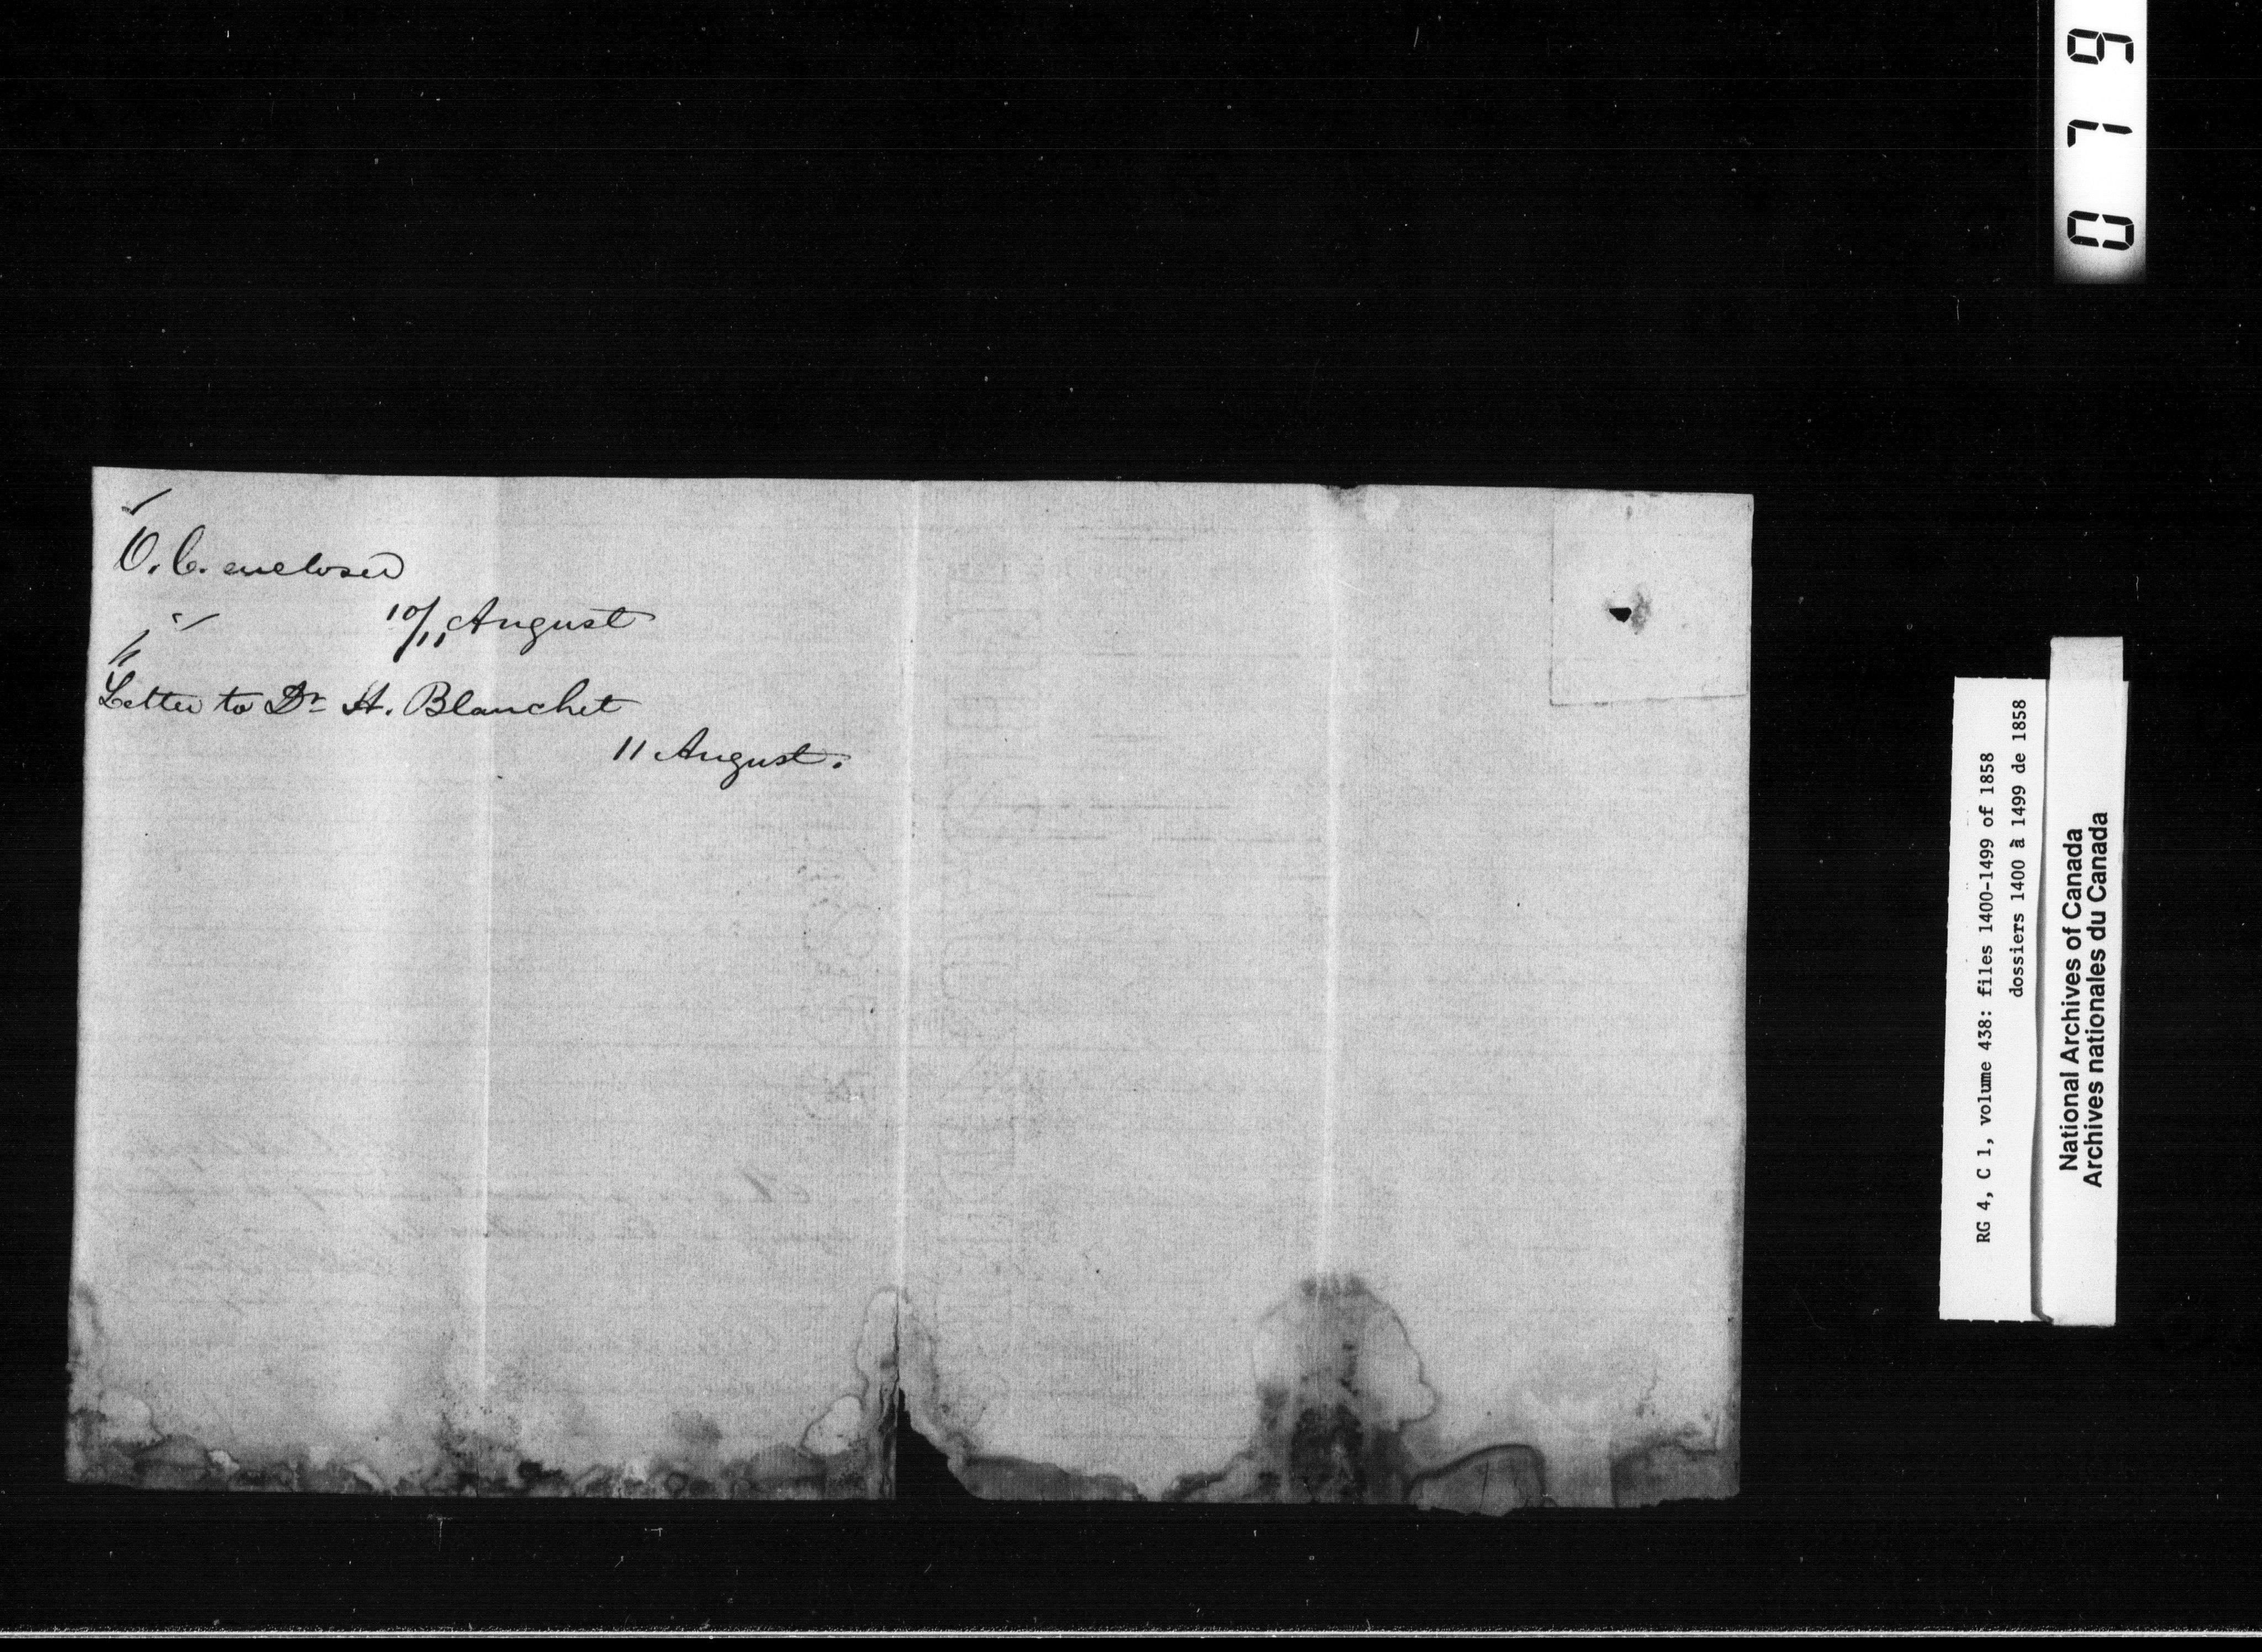 O. C. enclosed
" 10/11 August
Letter to Dr H. Blanchet
11 August.
0719
RG 4, C 1, volume 438: files 1400-1499 of 1858
dossiers 1400 à 1499 de 1858
National Archives of Canada
Archives nationales du Canada